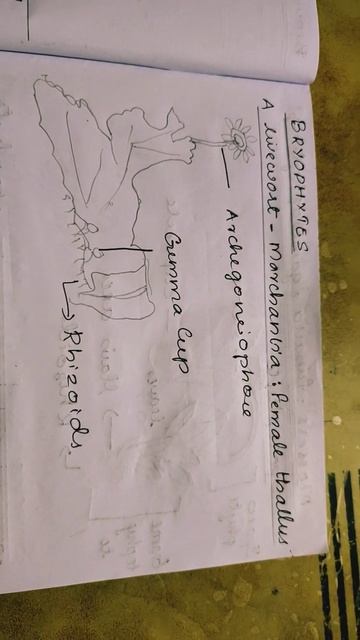 BRYOPHYTES
A livewort - Marchantia : Female thallus
Archegoniophore
Gemma Cup
Rhizoids